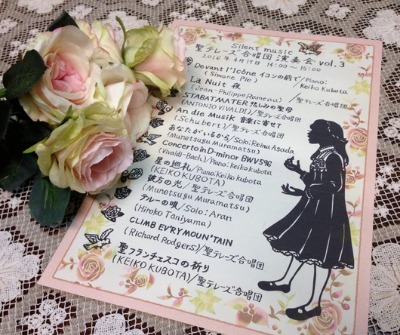 Silent music
聖テレーズ合唱団 演奏会 vol.3
Devant l'Icône イコンの前で/Piano:
(Simone Plé) Keiko Kubota
La Nuit 夜
(Jean-Philippe Rameau)/聖テレーズ合唱団
STABAT MATER 悲しみの聖母
(ANTONIO VIVALDI)/聖テレーズ合唱団
An die Musik 音楽に寄す
(Schubert)/聖テレーズ合唱団
あなたがいるから/Solo:Reina Asada
(Munetsugu Muramatsu)
Concerto in D minor BWV596
(Vivaldi-Bach)/Piano:Keiko Kubota
星の巡礼/Piano:Keiko Kubota
(KEIKO KUBOTA)
(Munetsugu Muramatsu)/聖テレーズ合唱団
テルーの唄/Solo:Aran
(Hiroko Taniyama)
CLIMB EV'RY MOUNTAIN
(Richard Rodgers)/聖テレーズ合唱団
聖フランチェスコの祈り
(KEIKO KUBOTA)/聖テレーズ合唱団